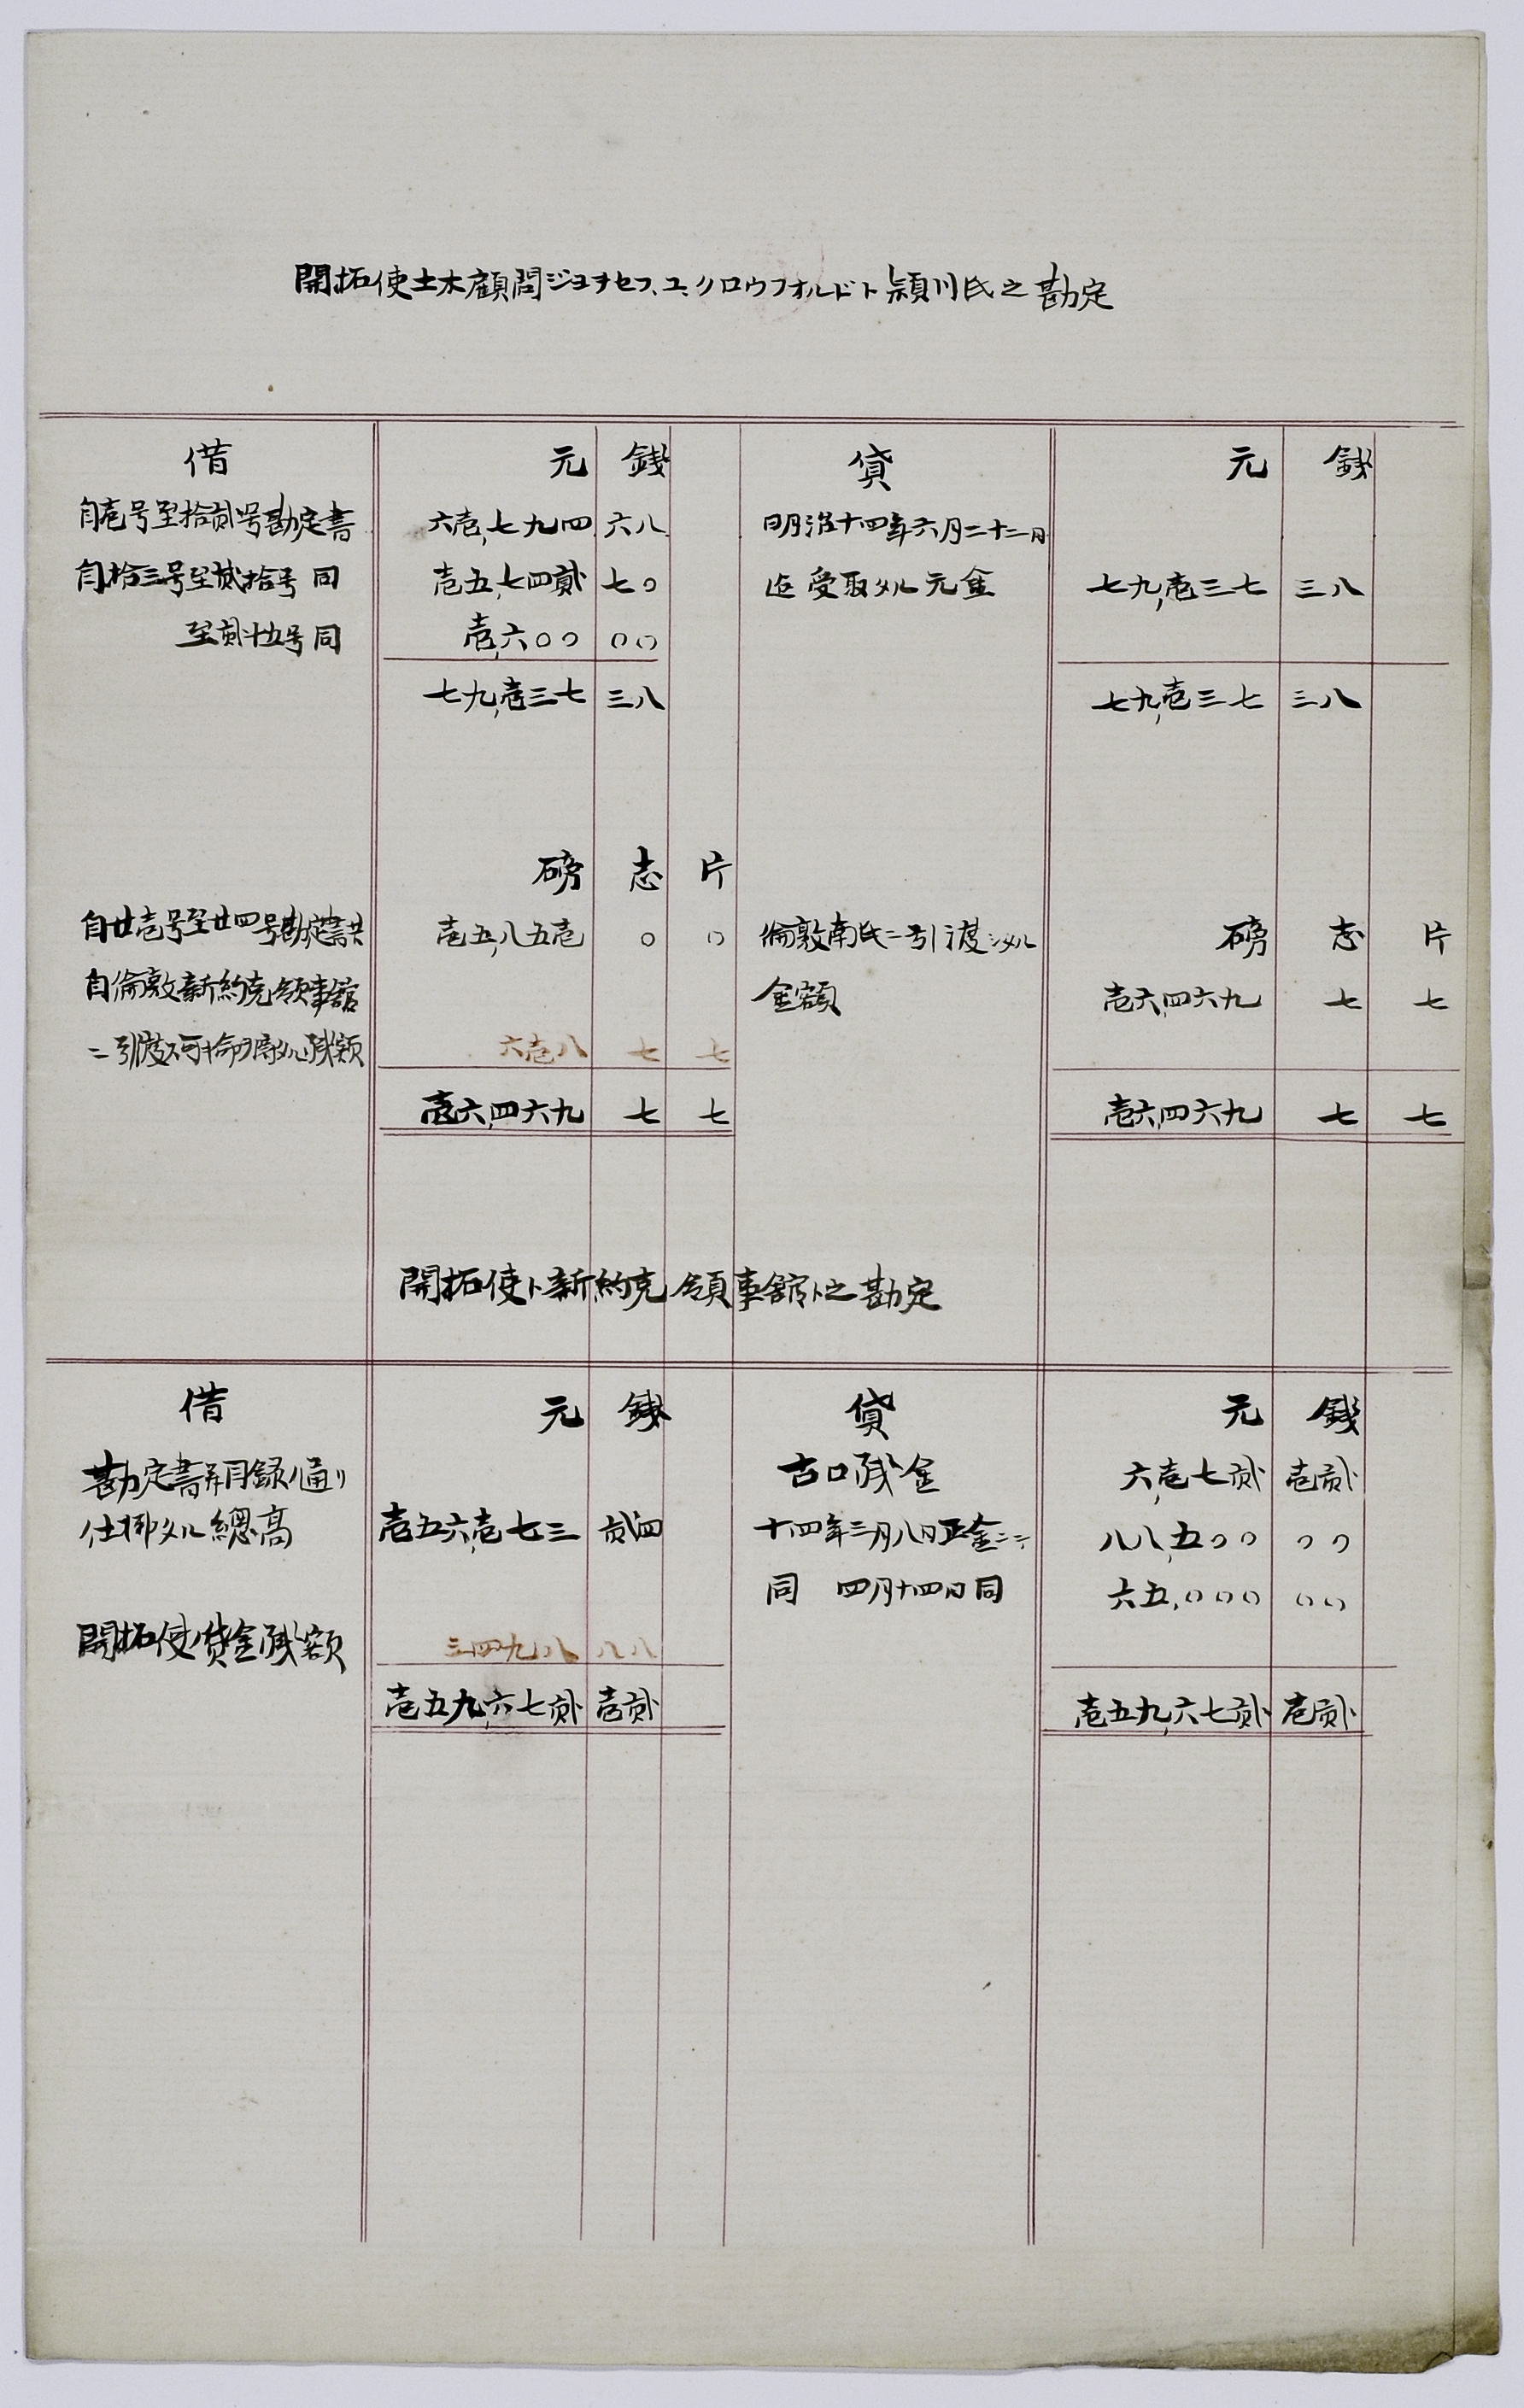 開拓使土木顧問ジヨヲセフ、ユ、クロウフオルドト頴川氏之勘定
借 元 銭 貸 元 銭
自壱号至拾貳号勘定書 六壱,七九四 六八 明治十四年六月二十二日
自拾三号至貳拾号 同 壱五,七四貳 七〇 迄受取タル元金 七九,壱三七 三八
至貳十五号 同 壱,六〇〇 〇〇
七九,壱三七 三八 七九,壱三七 三八
磅 志 片
自廿壱号至廿四号勘定書共 壱五,八五壱 〇 〇 倫敦南氏ニ引渡シタル 磅 志 片
自倫敦新約克領事舘 金額 壱六,四六九 七 七
ニ引渡 残額 六壱八 七 七
壱六,四六九 七 七 壱六,四六九 七 七
開拓使ト新約克領事舘ト之勘定
借 元 銭 貸 元 銭
勘定書幷目録ノ通リ 古口残金 六,壱七貳 壱貳
仕拂タル總高 壱五六,壱七三 貳四 十四年三月八日正金ニテ 八八,五〇〇 〇〇
同 四月十四日同 六五,〇〇〇 〇〇
開拓使ノ貸金残額 三四九八 八八
壱五九,六七貳 壱貳 壱五九,六七貳 壱貳